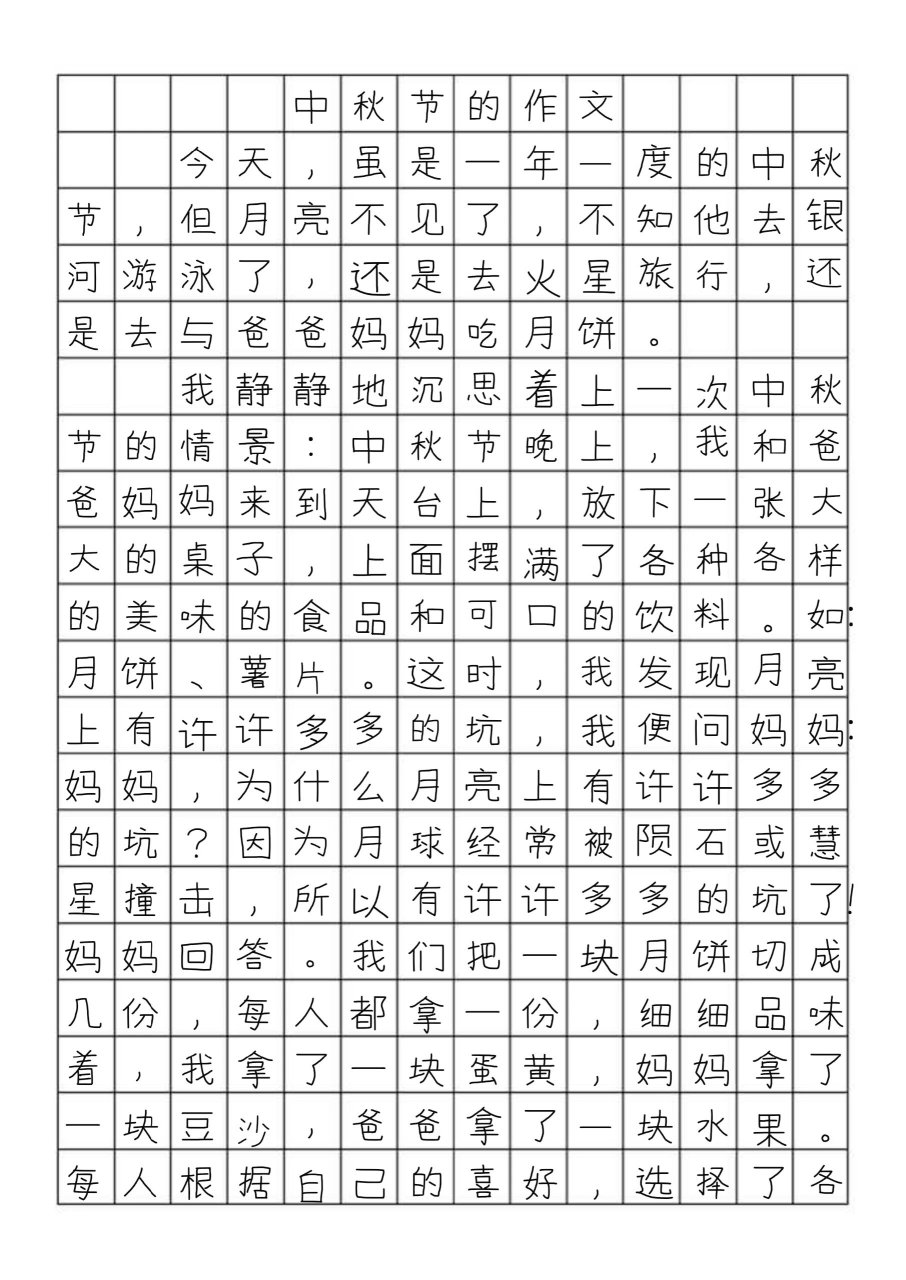 中秋节的作文
今天，虽是一年一度的中秋
节，但月亮不见了，不知他去银
河游泳了，还是去火星旅行，还
是去与爸爸妈妈吃月饼。
我静静地沉思着上一次中秋
节的情景：中秋节晚上，我和爸
爸妈妈来到天台上，放下一张大
大的桌子，上面摆满了各种各样
的美味的食品和可口的饮料。如：
月饼、薯片。这时，我发现月亮
上有许许多多的坑，我便问妈妈：
妈妈，为什么月亮上有许许多多
的坑？因为月球经常被陨石或慧
星撞击，所以有许许多多的坑了！
妈妈回答。我们把一块月饼切成
几份，每人都拿一份，细细品味
着，我拿了一块蛋黄，妈妈拿了
一块豆沙，爸爸拿了一块水果。
每人根据自己的喜好，选择了各